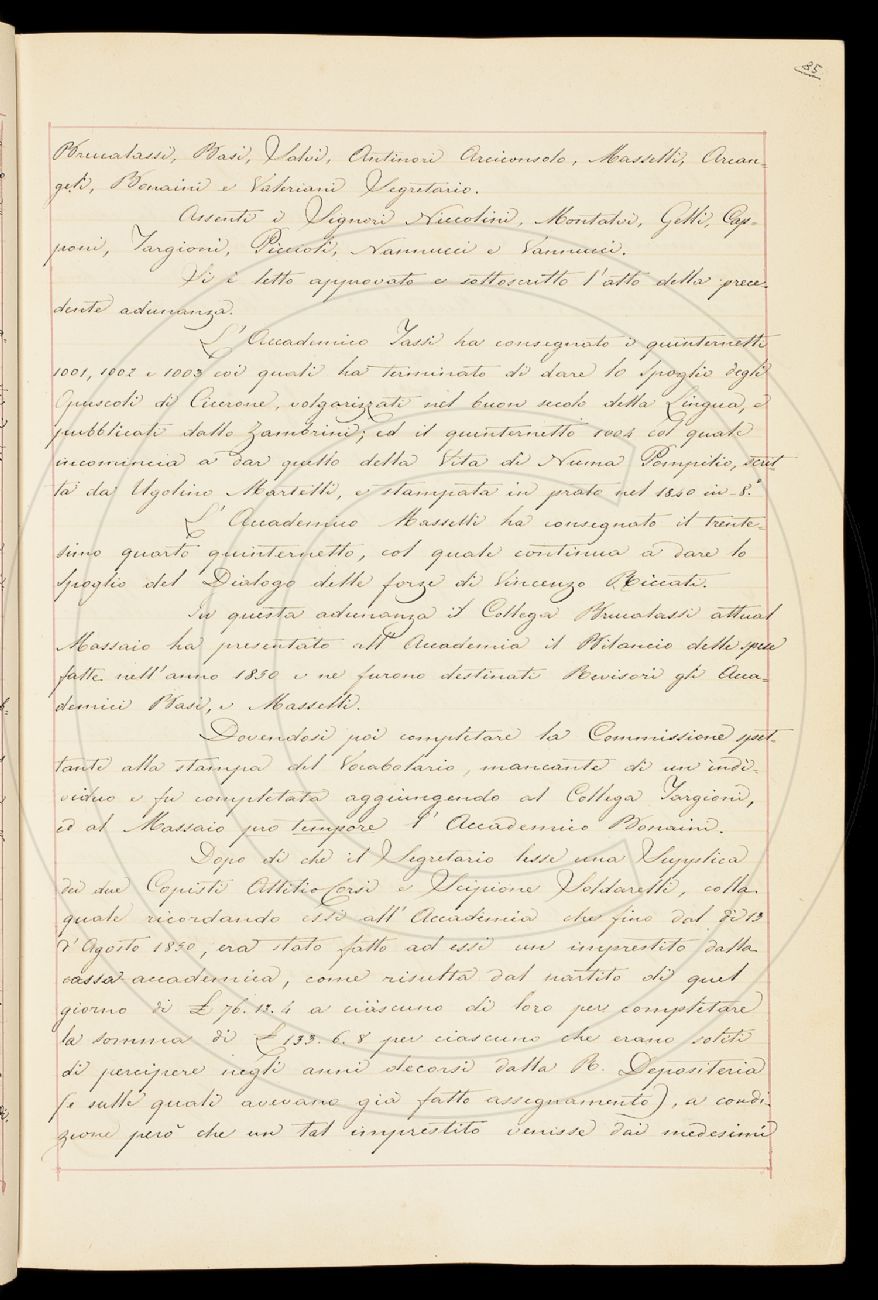 85
Brucalassi, Basi, Salvi, Antinori Arciconsolo, Masselli, Arcan=
geli, Bonaini e Valeriani Segretario.
Assenti i Signori Niccolini, Montalvi, Gelli, Cap=
poni, Targioni, Piccioli, Nannucci e Vannucci.
Si è letto approvato e sottoscritto l'atto della prece-
dente adunanza.
L'Accademico Tassi ha consegnato i quinternetti
1001, 1002 e 1003 coi quali ha terminato di dare lo Spoglio degli
Opuscoli di Cicerone, volgarizzati nel buon secolo della Lingua, e
pubblicati dallo Zambrini; ed il quinternetto 1004 col quale
incomincia a dar quello della Vita di Numa Pompilio, scrit
ta da Ugolino Martelli, e stampata in prato nel 1850 in-8.°
L'Accademico Masselli ha consegnato il trente-
simo quarto quinternetto, col quale continua a dare lo
Spoglio del Dialogo delle forze di Vincenzo Riccati.
In questa adunanza il Collega Brucalassi attual
Massaio ha presentato all'Accademia il Bilancio delle spese
fatte nell'anno 1850 e ne furono destinati Revisori gli Acca=
demici Basi, e Masselli.
Dovendosi poi completare la Commissione spet-
tante alla stampa del Vocabolario, mancante di un indi-
viduo e fu completata aggiungendo al Collega Targioni,
ed al Massaio pro tempore l'Accademico Bonaini.
Dopo di che il Segretario lesse una Supplica
dei due Copisti Attilio Corsi e Scipione Soldarelli, colla
quale ricordando essi all'Accademia che fino dal dì 13
d'Agosto 1850, era stato fatto ad essi un imprestito dalla
cassa accademica, come risulta dal partito di quel
giorno di £ 76.13.4 a ciascuno di loro per completare
la somma di £ 133.6.8 per ciascuno che erano soliti
di percipere negli anni decorsi dalla R. Depositeria
(e sulle quali avevano già fatto assegnamento), a condi-
zione però che un tal imprestito venisse dai medesimi